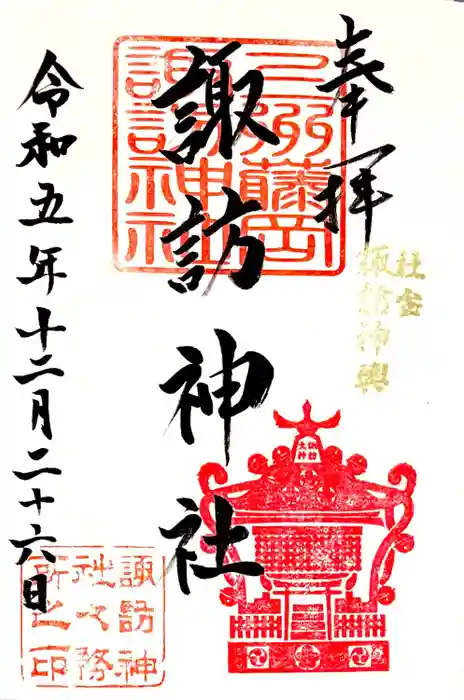 奉拝
社宝
諏訪神輿
諏訪神社
上州藤岡
諏訪神社
諏訪
大神
令和五年十二月二十六日
諏訪神
社之務
所之印